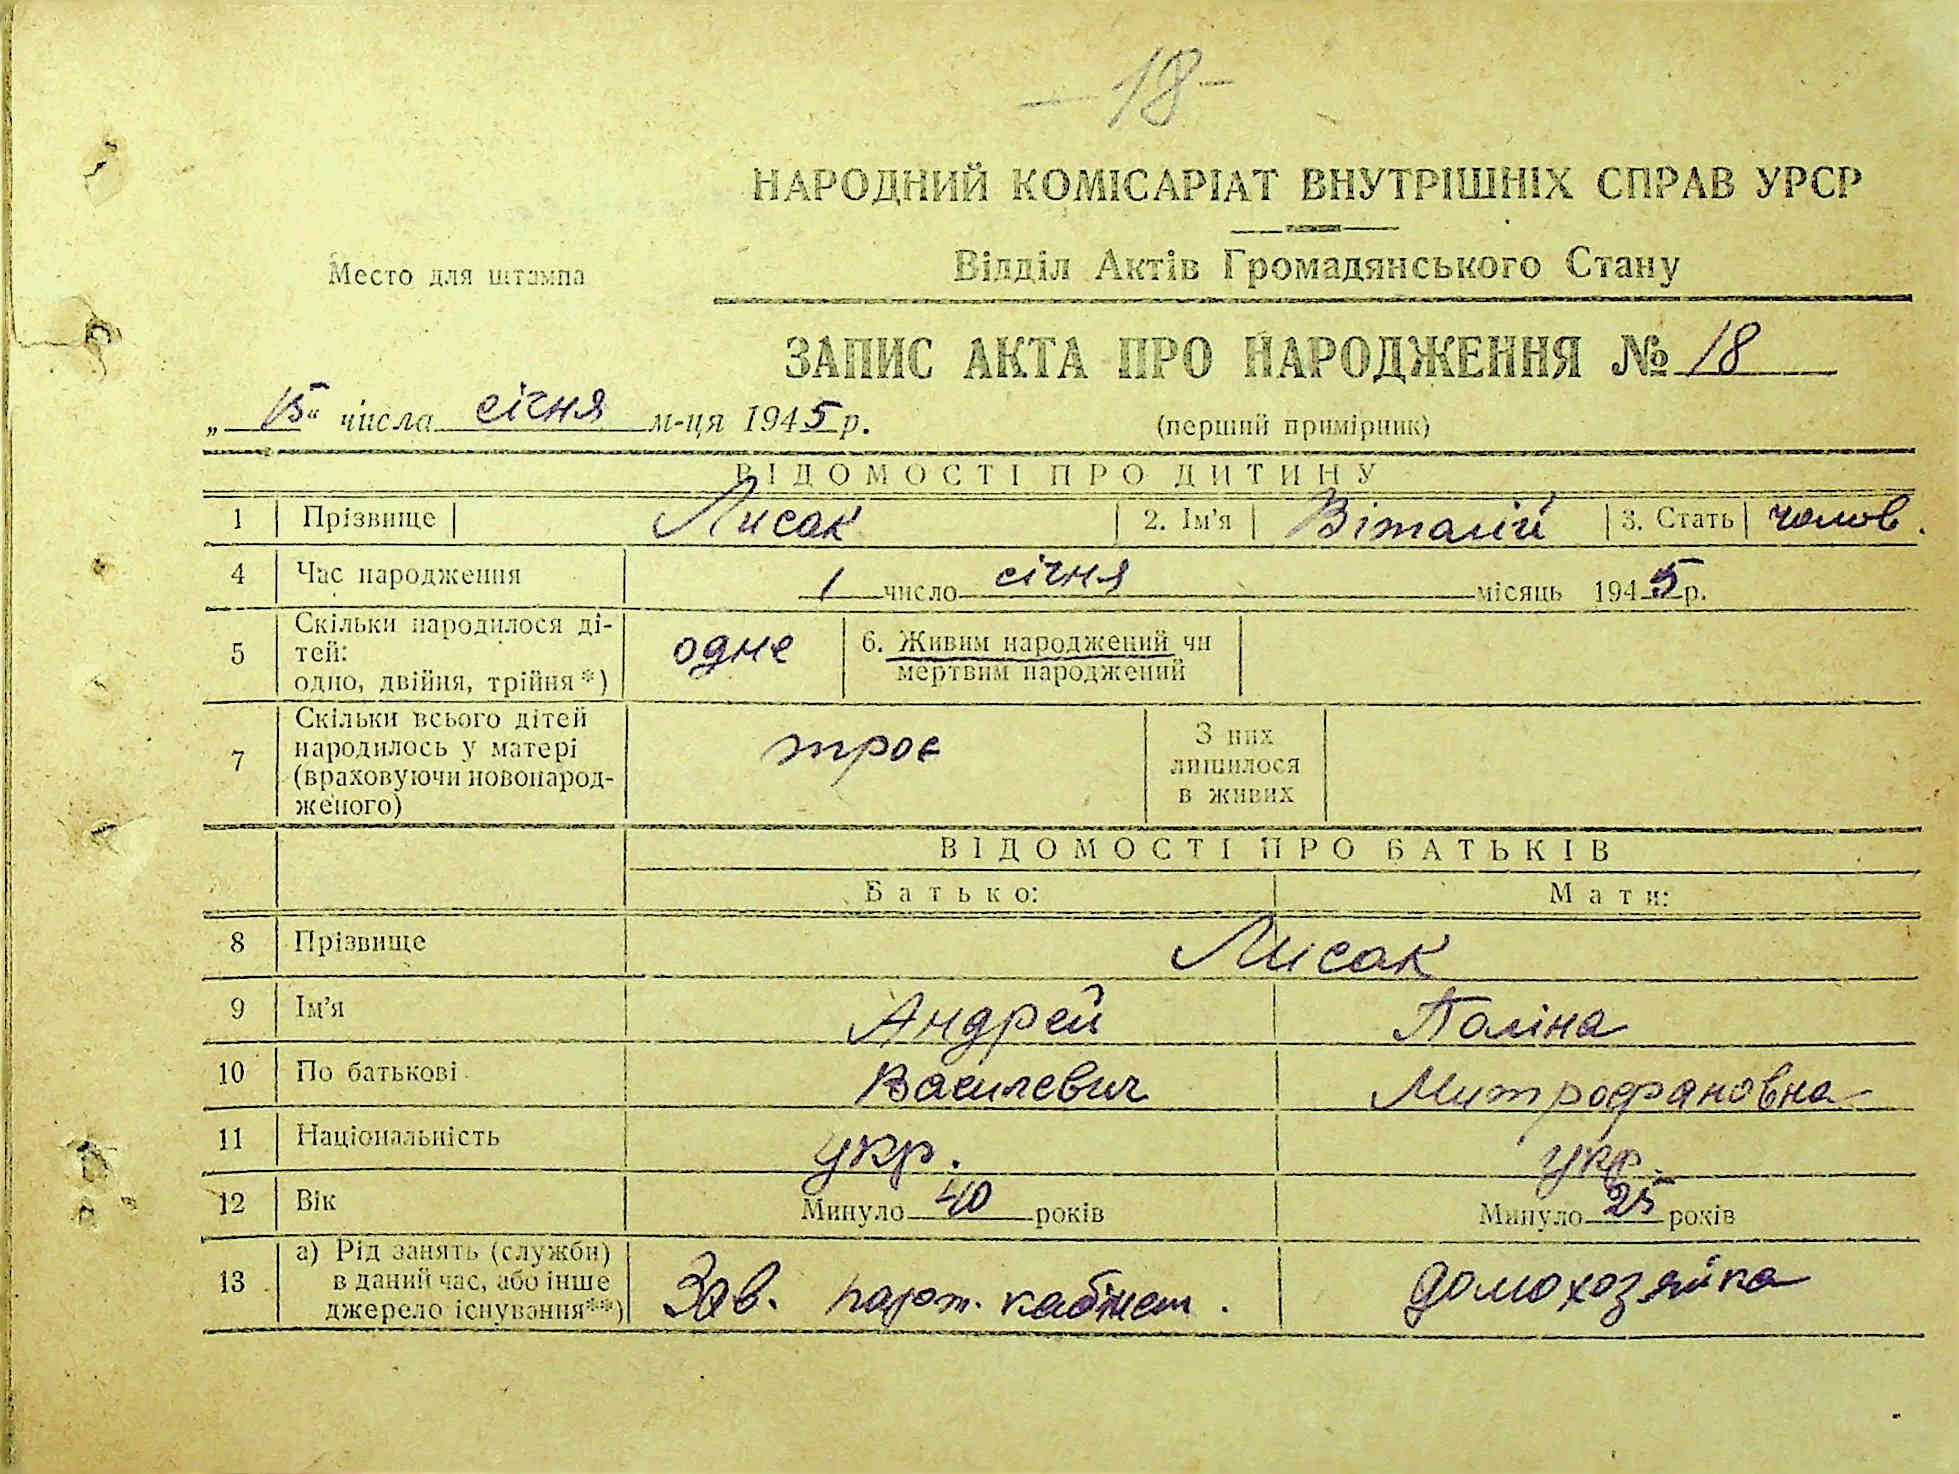 —18—
НАРОДНИЙ КОМІСАРІАТ ВНУТРІШНІХ СПРАВ УРСР
Место для штампа
Відділ Актів Громадянського Стану
ЗАПИС АКТА ПРО НАРОДЖЕННЯ № 18
„15“ числа січня м-ця 1945 р. (перший примірник)
ВІДОМОСТІ ПРО ДИТИНУ
1 Прізвище Лисак 2. Ім'я Віталій 3. Стать чолов.
4 Час народження 1 число січня місяць 1945 р.
5 Скільки народилося ді-
тей:
одно, двійня, трійня*) одне 6. Живим народжений чи
мертвим народжений
7 Скільки всього дітей
народилось у матері
(враховуючи новонарод-
женого) троє З них
лишилося
в живих
ВІДОМОСТІ ПРО БАТЬКІВ
Батько: Мати:
8 Прізвище Лисак
9 Ім'я Андрей Поліна
10 По батькові Василевич Митрофановна
11 Національність укр. укр.
12 Вік Минуло 40 років Минуло 25 років
13 а) Рід занять (служби)
в даний час, або інше
джерело існування**) Зав. парт. кабінет. домохозяйка